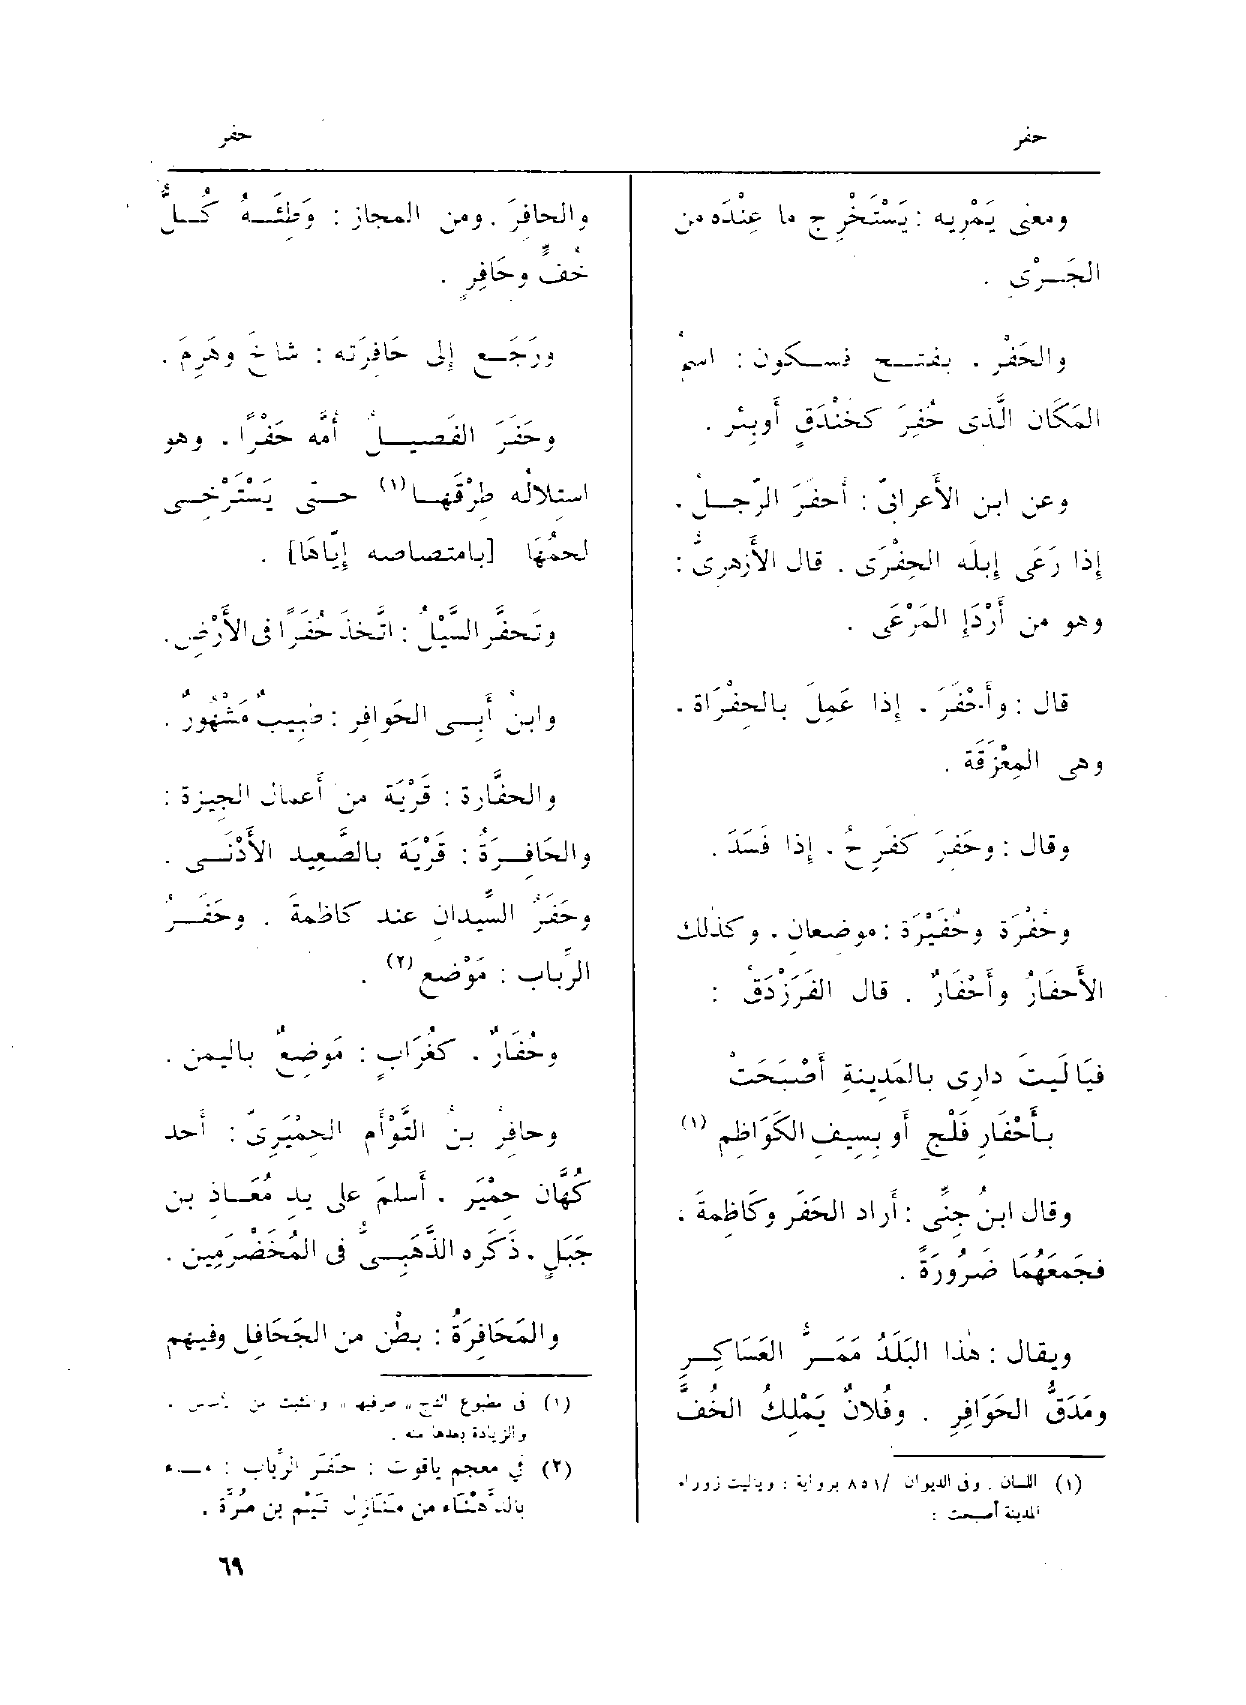 حفر
حفر
ومعنى يَمْرِيه : يَسْتَخْرِج ما عِنْدَه من
الجَرْىِ .
والحَفْرُ . بفتح فسكون : اسمُ
المَكَان الَّذى حُفِرَ كخَنْدَقٍ أوبِئْر .
وعن ابن الأَعرابىّ : أَحفَرَ الرّجلُ .
إذا رَعَى إبلَه الحِفْرَى . قال الأَزهرىُّ :
وهو من أَرْدَإِ المَرْعَى .
قال : وأَحْفَرَ . إذا عَمِلَ بالحِفْرَاة .
وهى المِعْزَقَة .
وقال : وحَفِرَ كفَرِحَ . إذا فَسَدَ .
وحُفْرَة وحُفَيْرَة : موضعان . وكذلك
الأَحفَارُ وأَحْفَارٌ . قال الفَرَزْدَقُ :
فيَالَيتَ دارِى بالمَدِينةِ أَصْبَحَتْ
بأَحْفَارِ فَلْجٍ أَو بِسِيفِ الكَوَاظِمِ (١)
وقال ابنُ جِنِّى : أَراد الحَفَر وكَاظِمةَ .
فجَمَعَهُما ضَرُورَةً .
ويقال : هٰذا البَلَدُ مَمَرُّ العَسَاكِرِ
ومَدَقُّ الحَوَافِرِ . وفُلانٌ يَمْلِكُ الخُفَّ
(١) اللسان . وفى الديوان /٨٥١ برواية : وياليت زوراء
المدينة أصبحت :
والحافِرَ . ومن المجاز : وَطِئَهُ كُلُّ
خُفٍّ وحَافِرٍ .
ورَجَع إلى حَافِرَته : شاخَ وهَرِمَ .
وحَفَرَ الفَصِيلُ أُمَّه حَفْرًا . وهو
استِلالُه طِرْقَها (١) حتى يَسْتَرْخِى
لحمُهَا [بامتصاصه إِيّاهَا] .
وتَحفَّر السَّيْلُ : اتَّخذَ حُفَرًا فى الأَرْضِ .
وابنُ أَبى الحَوافِر : طَبِيبٌ مَشْهُورٌ .
والحفَّارة : قَرْيَة من أَعمال الجِيزة :
والحَافِرَةُ : قَرْيَة بالصَّعِيد الأَدْنَى .
وحَفَرُ السِّيدان عند كاظمةَ . وحَفَرُ
الرِّباب : مَوْضع (٢) .
وحُفَارٌ . كغُرَابٍ : مَوضِعٌ باليمن .
وحافِرُ بنُ التَّوْأَم الحِمْيَرِىّ : أَحد
كُهَّان حِمْيَر . أَسلمَ على يدِ مُعَاذِ بن
جَبَلٍ . ذَكَره الذَّهَبِىُّ فى المُخَضْرَمِين .
والمَحَافِرَةُ : بطْن من الجَحَافِل وفيهم
(١) فى مطبوع التاج « صرفها » والمثبت من .
والزيادة بعدها منه .
(٢) فى معجم ياقوت : حَفَر الرِّباب : ماء
بالدَّهْنَاء من مَنَازِل تَيْم بن مُرَّة .
٦٩